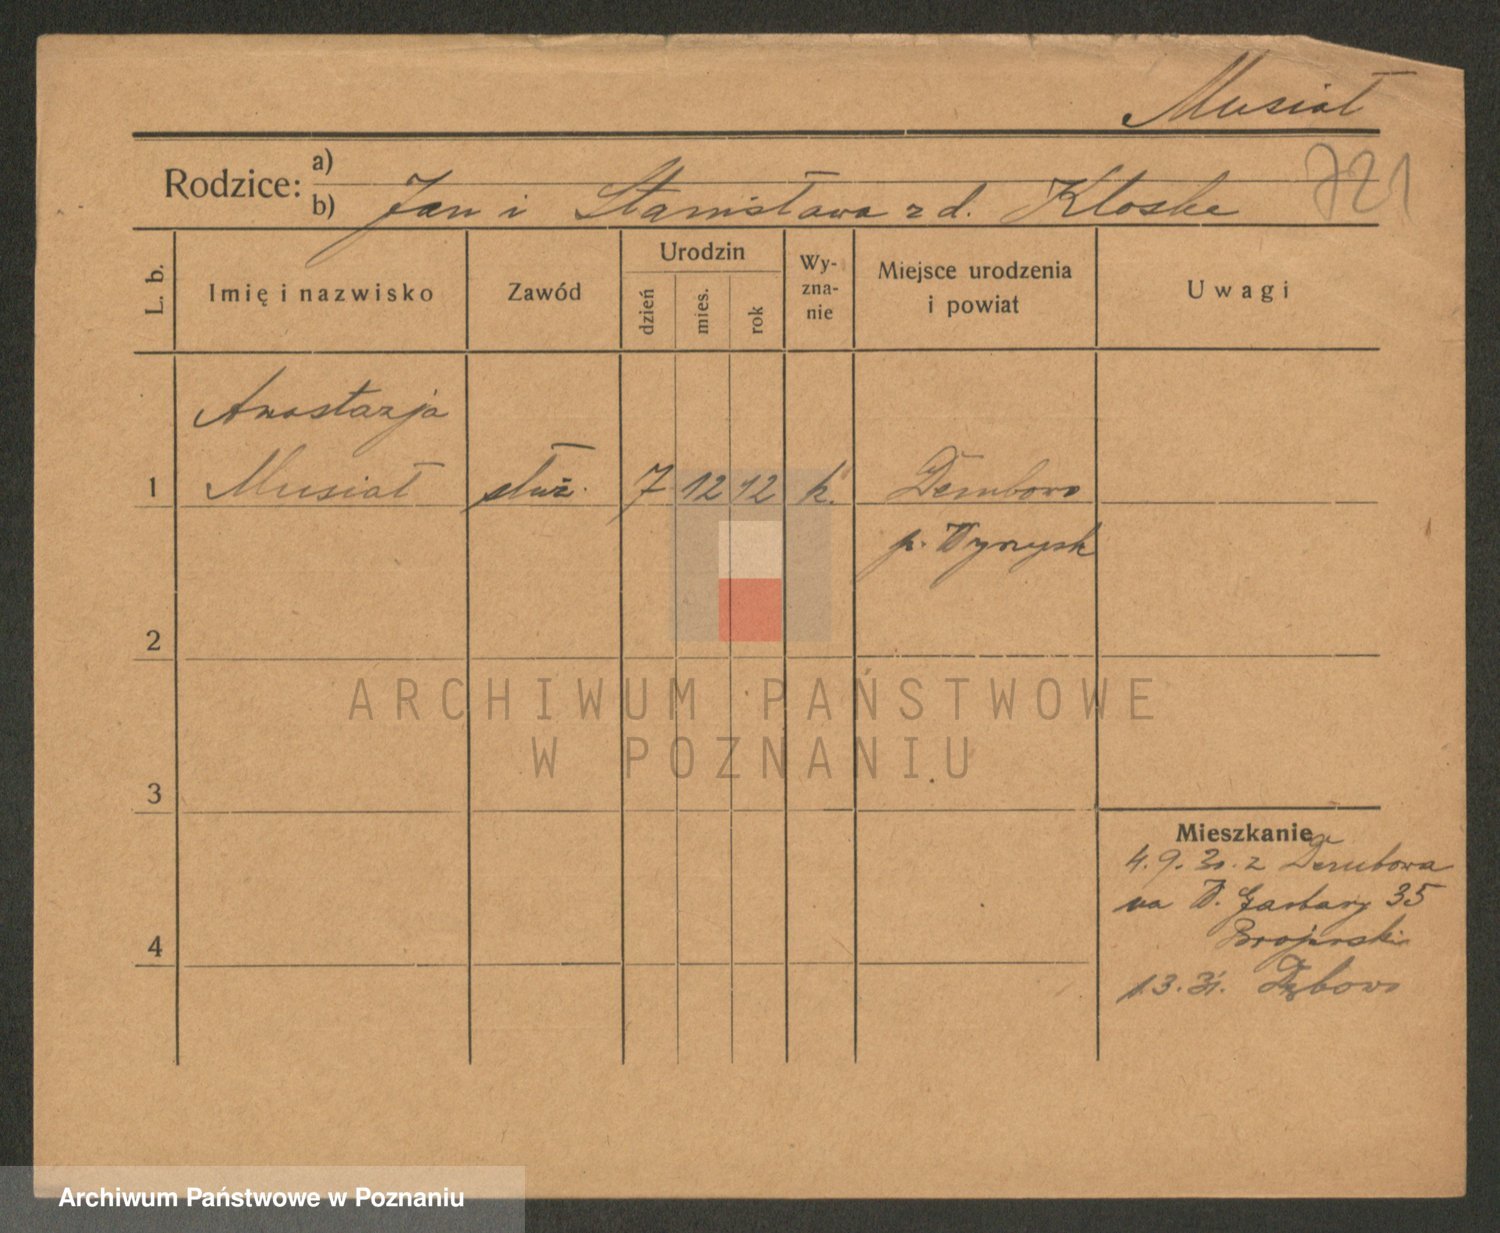 Musiał
Rodzice: a)
b) Jan i Stanisława z d. Kloske
721
L. b.
Imię i nazwisko
Zawód
Urodzin
dzień
mies.
rok
Wy-
zna-
nie
Miejsce urodzenia
i powiat
Uwagi
Anastazja
1 Musiał służ. 7 12 12 k. Dembowo
p. Wyrzysk
2
3
4
Mieszkanie
4. 9. 30. z Dembowa
na W. Garbary 35
1.3.31. Dębowo
ARCHIWUM PAŃSTWOWE
W POZNANIU
Archiwum Państwowe w Poznaniu